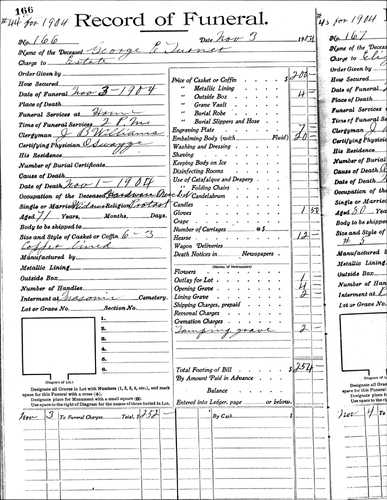 166
#44 for 1904
Record of Funeral.
No. 166
Date Nov 3 1904
Name of the Deceased George E Turner
Charge to Estate
Order Given by
How Secured
Date of Funeral Nov 3-1904
Place of Death
Funeral Services at Home
Time of Funeral Services 2 P.M.
Clergyman J B Williams
Certifying Physician O Swayze
His Residence
Number of Burial Certificate
Cause of Death
Date of Death Nov 1-1904
Occupation of the Deceased Hardware
Single or Married Widower
Aged 71 Years, Months, Days.
Body to be shipped to
Size and Style of Casket or Coffin 6-3
Copper Lined
Manufactured by
Metallic Lining
Outside Box
Number of Handles
Interment at Masonic Cemetery.
Lot or Grave No. Section No.
1.
2.
3.
4.
5.
6.
(Diagram of Lot.)
Designate all Graves in Lot with Numbers (1, 2, 3, 4, etc.), and mark
space for this Funeral with a cross (x).
Designate place for Monument with a small square (□).
Use space to right of Diagram for the names of those buried in Lot.
Price of Casket or Coffin $ 200
" Metallic Lining
" Outside Box 4
" Grave Vault
" Burial Robe
" Burial Slippers and Hose
Engraving Plate
Embalming Body (with Fluid) 20
Washing and Dressing
Shaving
Keeping Body on Ice
Disinfecting Rooms
Use of Catafalque and Drapery
" Folding Chairs
" Candelabrum
Candles
Gloves 1 50
Crape
Number of Carriages @ $
Hearse 12
Wagon Deliveries
Death Notices in Newspapers
(Names of Newspapers)
Flowers
Outlay for Lot 1
Opening Grave 4
Lining Grave 2
Shipping Charges, prepaid
Removal Charges
Cremation Charges
Tamping grave 2
Total Footing of Bill $ 254
By Amount Paid in Advance
Balance
Entered into Ledger, page or below.
Nov 3 To Funeral Charges Total, $ 252
By Cash $
#45 for 1904
No. 167
Name of the
Charge to
Order Given
How Secured
Date of Fun
Place of Dea
Funeral Ser
Time of Fun
Clergyman
Certifying
His Residen
Number of
Cause of De
Date of Dea
Occupation
Single or M
Aged 50 Y
Body to be sh
Size and Sty
# 5
Manufactur
Metallic Lin
Outside Box
Number of H
Interment a
Lot or Grave
Designate all Gra
space for this Fune
Designate place f
Use space to right
Nov 4